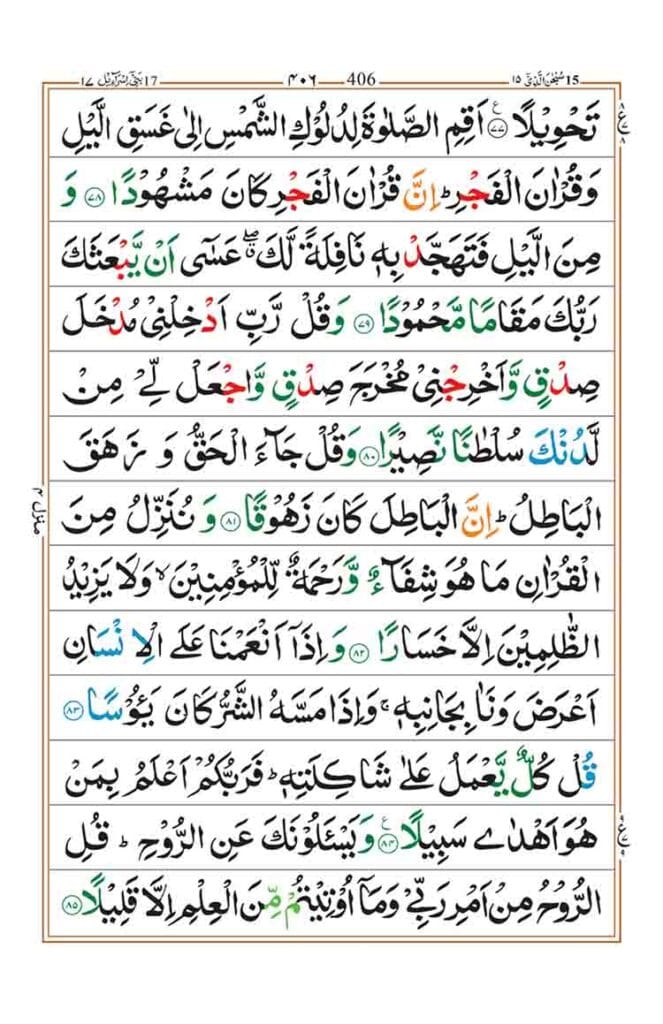 سُبْحٰنَ الَّذِیْۤ ١٥ 15 406 ٤٠٦ 17 بَنِیْۤ اِسْرَآءِیْل ١٧
تَحْوِیْلًا ﴿۷۷﴾ اَقِمِ الصَّلٰوةَ لِدُلُوْكِ الشَّمْسِ اِلٰی غَسَقِ الَّیْلِ
وَقُرْاٰنَ الْفَجْرِ ؕ اِنَّ قُرْاٰنَ الْفَجْرِ كَانَ مَشْهُوْدًا ﴿۷۸﴾ وَ
مِنَ الَّیْلِ فَتَهَجَّدْ بِهٖ نَافِلَةً لَّكَ ۖۗ عَسٰۤی اَنْ یَّبْعَثَكَ
رَبُّكَ مَقَامًا مَّحْمُوْدًا ﴿۷۹﴾ وَقُلْ رَّبِّ اَدْخِلْنِیْ مُدْخَلَ
صِدْقٍ وَّاَخْرِجْنِیْ مُخْرَجَ صِدْقٍ وَّاجْعَلْ لِّیْ مِنْ
لَّدُنْكَ سُلْطٰنًا نَّصِیْرًا ﴿۸۰﴾ وَقُلْ جَآءَ الْحَقُّ وَ زَهَقَ
الْبَاطِلُ ؕ اِنَّ الْبَاطِلَ كَانَ زَهُوْقًا ﴿۸۱﴾ وَ نُنَزِّلُ مِنَ
الْقُرْاٰنِ مَا هُوَ شِفَآءٌ وَّرَحْمَةٌ لِّلْمُؤْمِنِیْنَ ۙ وَلَا یَزِیْدُ
الظّٰلِمِیْنَ اِلَّا خَسَارًا ﴿۸۲﴾ وَاِذَاۤ اَنْعَمْنَا عَلَی الْاِنْسَانِ
اَعْرَضَ وَنَاٰ بِجَانِبِهٖ ۚ وَاِذَا مَسَّهُ الشَّرُّ كَانَ یَـُٔوْسًا ﴿۸۳﴾
قُلْ كُلٌّ یَّعْمَلُ عَلٰی شَاكِلَتِهٖ ؕ فَرَبُّكُمْ اَعْلَمُ بِمَنْ
هُوَ اَهْدٰی سَبِیْلًا ﴿۸۴﴾ وَیَسْـَٔلُوْنَكَ عَنِ الرُّوْحِ ؕ قُلِ
الرُّوْحُ مِنْ اَمْرِ رَبِّیْ وَمَاۤ اُوْتِیْتُمْ مِّنَ الْعِلْمِ اِلَّا قَلِیْلًا ﴿۸۵﴾
منزل ٤